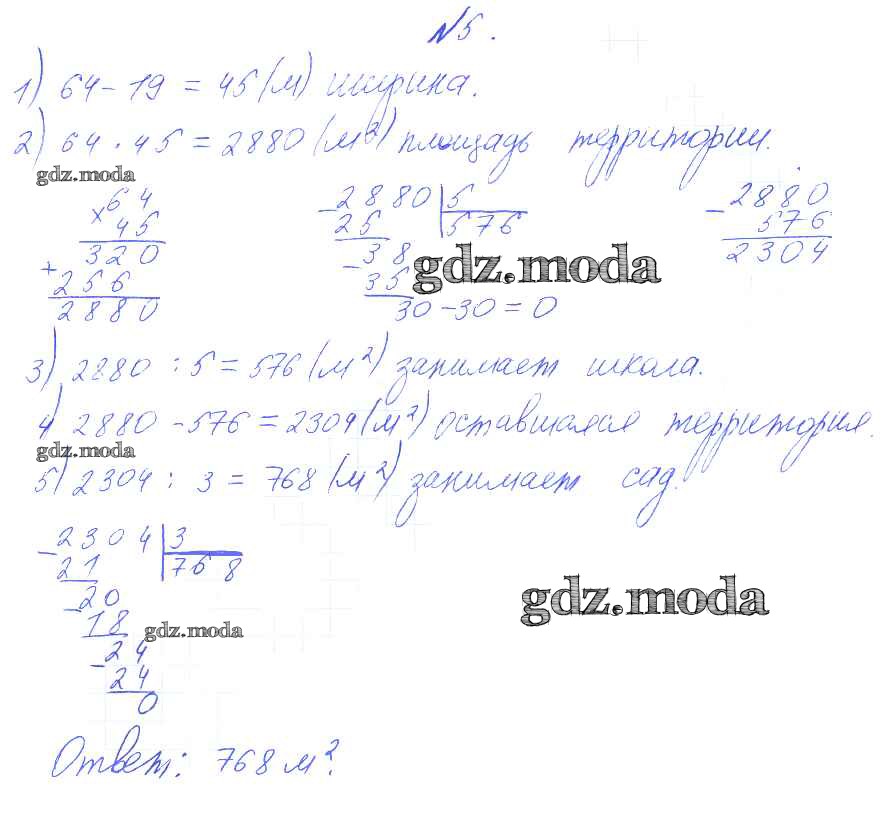 №5.
1) 64 - 19 = 45 (м) ширина.
2) 64 · 45 = 2880 (м²) площадь территории.
gdz.moda
× 64
45
+ 320
256
2880
- 2880 | 5
25 | 576
- 38
35
30 - 30 = 0
- 2880
576
2304
gdz.moda
3) 2880 : 5 = 576 (м²) занимает школа.
4) 2880 - 576 = 2304 (м²) оставшаяся территория.
gdz.moda
5) 2304 : 3 = 768 (м²) занимает сад.
- 2304 | 3
21 | 768
- 20
18
- 24
24
0
gdz.moda
gdz.moda
Ответ: 768 м².